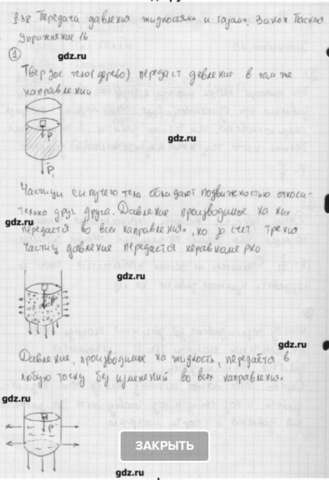 §38 Передача давления жидкостями и газами. Закон Паскаля
Упражнение 16
gdz.ru
1
Твёрдое тело (дерево) передаст давление в том же
направлении
gdz.ru
P
P
Частицы сыпучего тела обладают подвижностью относи-
тельно друг друга. Давление производимое на них
gdz.ru
передаётся во всех направлениях, но за счёт трения
частиц давление передаётся неравномерно
gdz.ru
P
gdz.ru
Давление, производимое на жидкость, передаётся в
любую точку без изменений во всех направлениях.
gdz.ru
gdz.ru
P
ЗАКРЫТЬ
gdz.ru